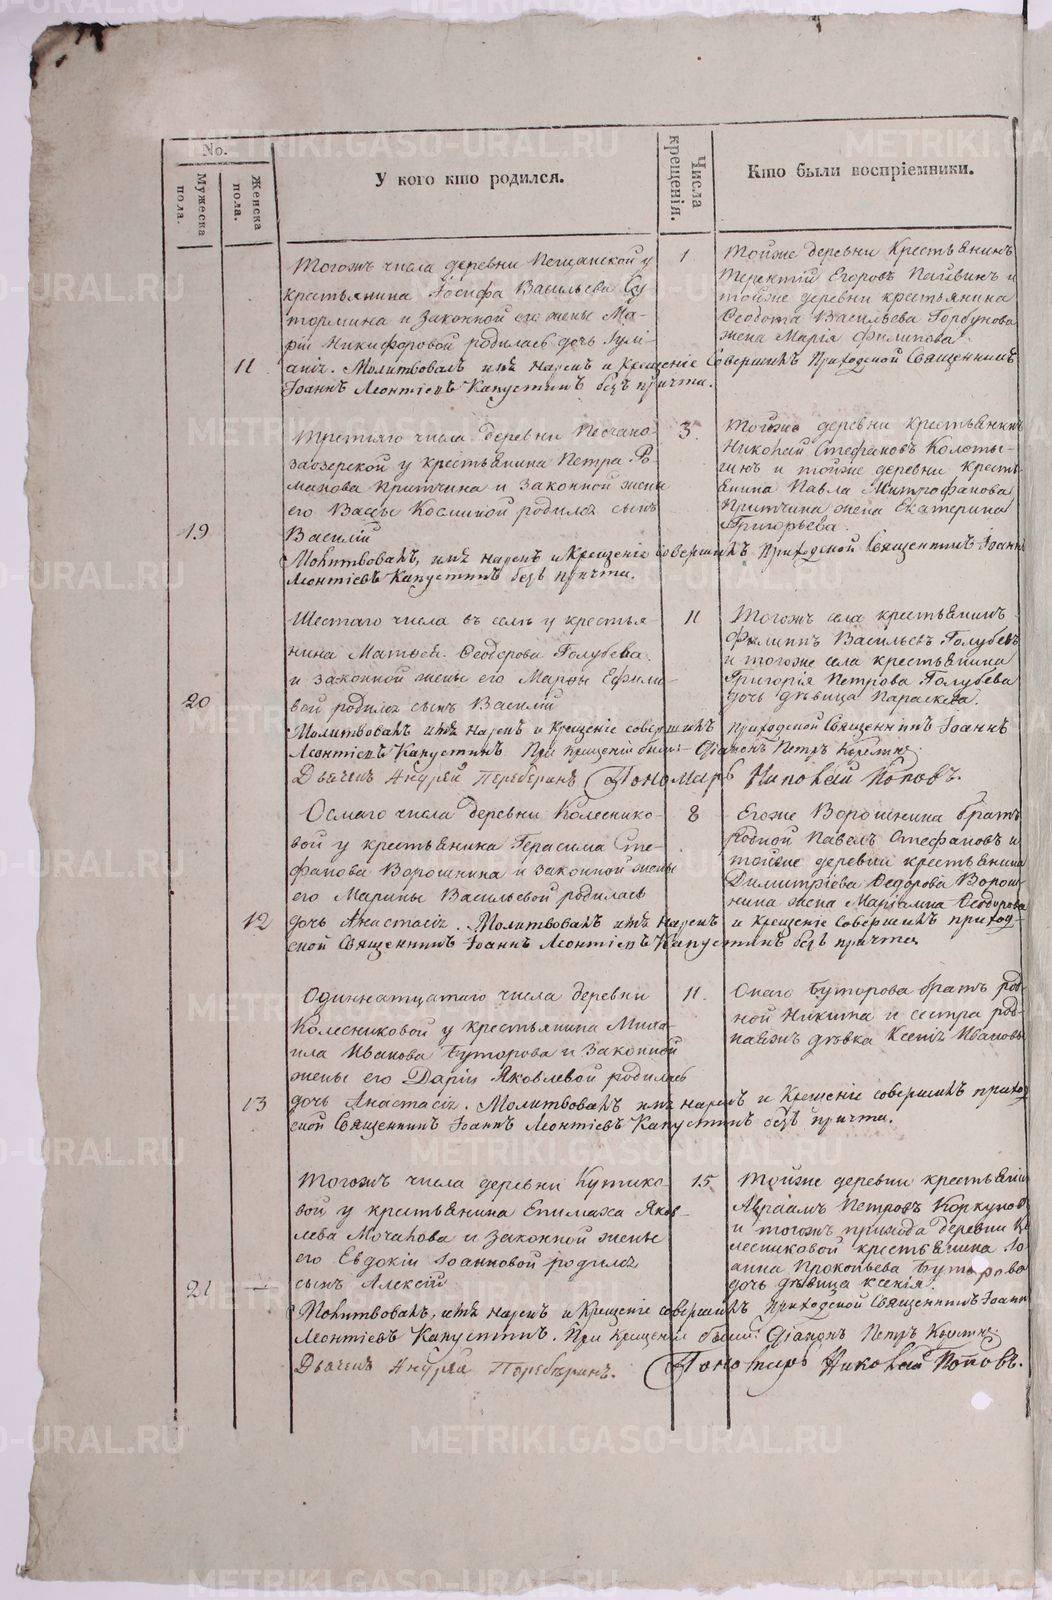 No.
Мужеска пола.
Женска пола.
У кого кто родился.
Числа крещенія.
Кто были воспріемники.
11
Тогожъ числа деревни Песчанской у
крестьянина Іосифа Васильева Су-
тормина и законной его жены Ма-
ріи Никифоровой родилась дочь Іулі-
аніа. Молитвовалъ имя нарекъ и крещеніе совершилъ Приходской Священникъ
Іоаннъ Леонтіевъ Капустинъ безъ причта.
1
Тойже деревни Крестьянинъ
Терентій Егоровъ и
тойже деревни крестьянина
Ѳеодота Васильева Горбунова
жена Марія Филипова.
19
Третьяго числа деревни Песчано-
заозерской у крестьянина Петра Ро-
манова Притчина и законной жены
его Вассы Косминой родился сынъ
Василій
Молитвовалъ, имя нарекъ и Крещеніе совершилъ Приходской Священникъ Іоаннъ
Леонтіевъ Капустинъ безъ причта.
3.
Тойже деревни крестьянинъ
Николай Стефановъ
и тойже деревни кресть-
янина Павла Митрофанова
Притчина жена Екатерина
Григорьева.
20
Шестаго числа въ селѣ у крестья-
нина Матѳея Ѳеодорова Голубева
и законной жены его Марѳы Ефимо-
вой родился сынъ Василій
Молитвовалъ имя нарекъ и крещеніе совершилъ Приходской Священникъ Іоаннъ
Леонтіевъ Капустинъ При крещеніи были: Діаконъ Петръ
Дьячекъ Андрей Пономарь Николай Поповъ.
11
Тогожъ села крестьянинъ
Филиппъ Васильевъ Голубевъ
и тогоже села крестьянина
Григорія Петрова Голубева
дочь дѣвица Параскева.
12
Осмаго числа деревни Колеснико-
вой у крестьянина Герасима Сте-
фанова Ворошнина и законной жены
его Марины Васильевой родилась
дочь Анастасія. Молитвовалъ имя нарекъ и крещеніе совершилъ приход-
ской Священникъ Іоаннъ Леонтіевъ Капустинъ безъ причта
8
Егоже Ворошнина братъ
родной Павелъ Стефановъ и
тойже деревни крестьянина
Димитріева Ѳедорова Ворош-
нина жена Маріамна Ѳеодорова
13
Одиннатцатаго числа деревни
Колесниковой у крестьянина Миха-
ила Иванова Буторова и законной
жены его Даріи Яковлевой родилась
дочь Анастасія. Молитвовалъ имя нарекъ и Крещеніе совершилъ приход-
ской Священникъ Іоаннъ Леонтіевъ Капустинъ безъ причта.
11.
Онаго Буторова братъ род-
ной Никита и сестра род-
ная дѣвка Ксенія Иванова
21
Тогожъ числа деревни
вой у крестьянина Епимаха Яков-
лева Мочалова и законной жены
его Евдокіи Іоанновой родился
сынъ Алексій
Молитвовалъ, имя нарекъ и Крещеніе совершилъ Приходской Священникъ Іоаннъ
Леонтіевъ Капустинъ. При крещеніи были: Діаконъ Петръ
Дьячекъ Андрей Пономарь Николай Поповъ.
15
Тойже деревни крестьянинъ
Авраамъ Петровъ Коркуновъ
и тогожъ прихода деревни Ко-
лесниковой крестьянина Іо-
анна Прокопьева Буторова
дочь дѣвица ксенія.
METRIKI.GASO-URAL.RU